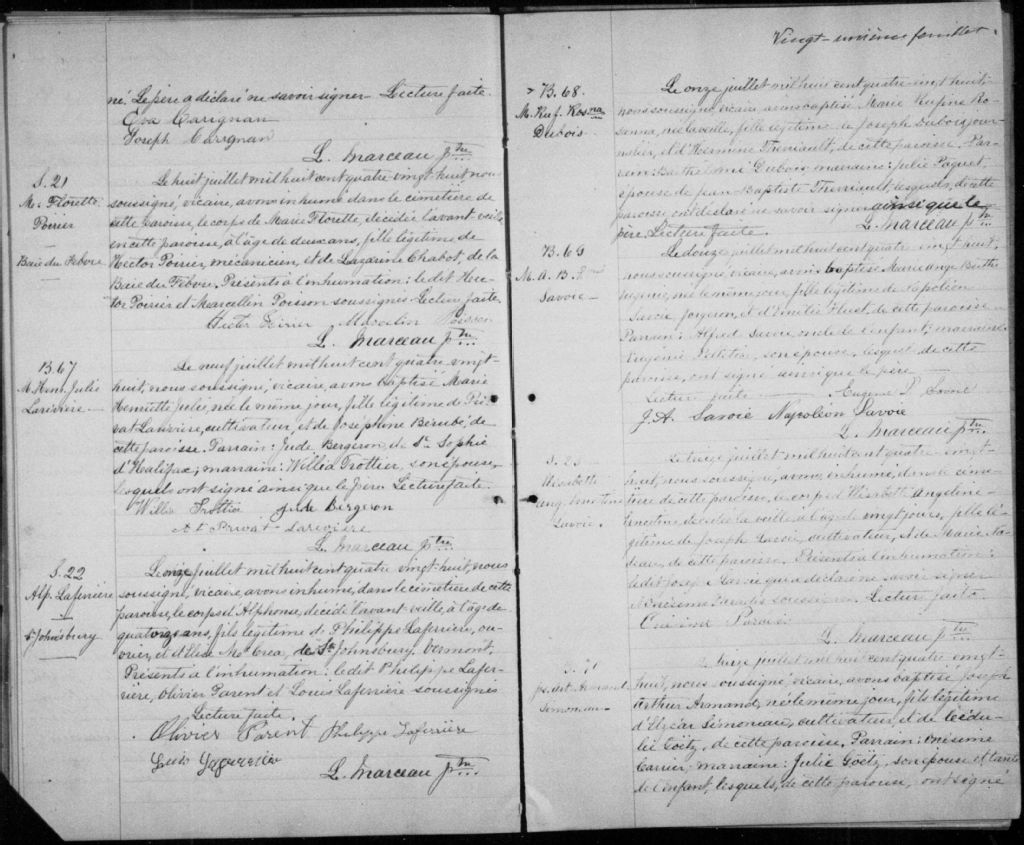 né. Le père a déclaré ne savoir signer Lecture faite.
Eva Carignan
Joseph Carignan
L. Marceau ptre
S. 21
M. Florette
Poirier
Baie du Febvre
Le huit juillet mil huit cent quatre vingt huit nous
soussigné, vicaire, avons inhumé dans le cimetière de
cette paroisse, le corps de Marie Florette, décédée l'avant veille
en cette paroisse, à l'âge de deux ans, fille légitime de
Hector Poirier, mécanicien, et de Lazarine Chabot, de la
Baie du Febvre. Présents à l'inhumation: le dit Hec-
tor Poirier et Marcellin Poisson soussignés Lecture faite.
Hector Poirier Marcelin Poisson
L. Marceau ptre
B. 67
M. Hen. Julie
Larivière
Le neuf juillet mil huit cent quatre vingt-
huit, nous soussigné, vicaire avons baptisé Marie
Henriette Julie, née le même jour, fille légitime de Pri-
vat Larivière, cultivateur, et de Josephine Bérubé, de
cette paroisse. Parrain: Jude Bergeron, de Ste Sophie
d'Halifax; marraine: Willia Trottier, son épouse,
lesquels ont signé ainsi que le père. Lecture faite.
Willia Trottier Jude Bergeron
Privat Larivière
L. Marceau ptre
S. 22
Alp. Laferrière
St Johnsbury
Le onze juillet mil huit cent quatre vingt-huit, nous
soussigné, vicaire avons inhumé, dans le cimetière de cette
paroisse, le corps d'Alphonse, décédé l'avant veille, à l'âge de
quatorze ans, fils légitime de Philippe Laferrière, ou-
vrier, et d'Elise McCrea, de St Johnsbury, Vermont.
Présents à l'inhumation: le dit Philippe Lafer-
rière, Olivier Parent et Louis Laferrière soussignés
Lecture faite.
Olivier Parent Philippe Laferrière
L. Marceau ptre
Vingt-unième feuillet.
B. 68.
M. Ruf. Rosna
Dubois
Le onze juillet mil huit cent quatre vingt huit
nous soussigné, vicaire avons baptisé Marie Rufine Ro-
sanna, née la veille, fille légitime de Joseph Dubois, jour-
nalier, et d'Hermine Thériault, de cette paroisse. Par-
rain: Barthelemi Dubois, marraine: Julie Paquet,
épouse de Jean Baptiste Thériault, lesquels, de cette
paroisse ont déclaré ne savoir signer ainsi que le
père. Lecture faite. L. Marceau ptre
B. 69
M. A. B.
Savoie
Le douze juillet mil huit cent quatre vingt huit,
nous soussigné, vicaire, avons baptisé Marie Ange Berthe
Eugénie, née le même jour, fille légitime de Napoléon
Savoie, forgeron, et d'Emélie Huot, de cette paroisse.
Parrain: Alfred Savoie oncle de l'enfant; marraine:
Eugénie Pelletier, son épouse, lesquels, de cette
paroisse, ont signé ainsi que le père
Lecture faite Eugénie P. Savoie
J. A. Savoie Napoléon Savoie
L. Marceau ptre
S. 23
Elisabeth
Ang. Ernestine
Savoie.
Le treize juillet mil huit cent quatre-vingt-
huit, nous soussigné, avons inhumé, dans le cime-
tière de cette paroisse, le corps d'Elisabeth Angeline
Ernestine, décédée la veille à l'âge de vingt jours, fille lé-
gitime de Joseph Savoie, cultivateur, et de Marie Na-
deau, de cette paroisse. Présents à l'inhumation:
le dit Joseph Savoie qui a déclaré ne savoir signer
et Onésime soussigné. Lecture faite
L. Marceau ptre
Jos. Art. Armand
Simoneau
Le treize juillet mil huit cent quatre vingt-
huit, nous soussigné, vicaire, avons baptisé Joseph
Arthur Armand, né le même jour, fils légitime
d'Elzéar Simoneau, cultivateur, et de Cédu-
lie Goëtz, de cette paroisse. Parrain: Onésime
Carrier, marraine: Julie Goëtz, son épouse et tante
de l'enfant, lesquels, de cette paroisse, ont signé